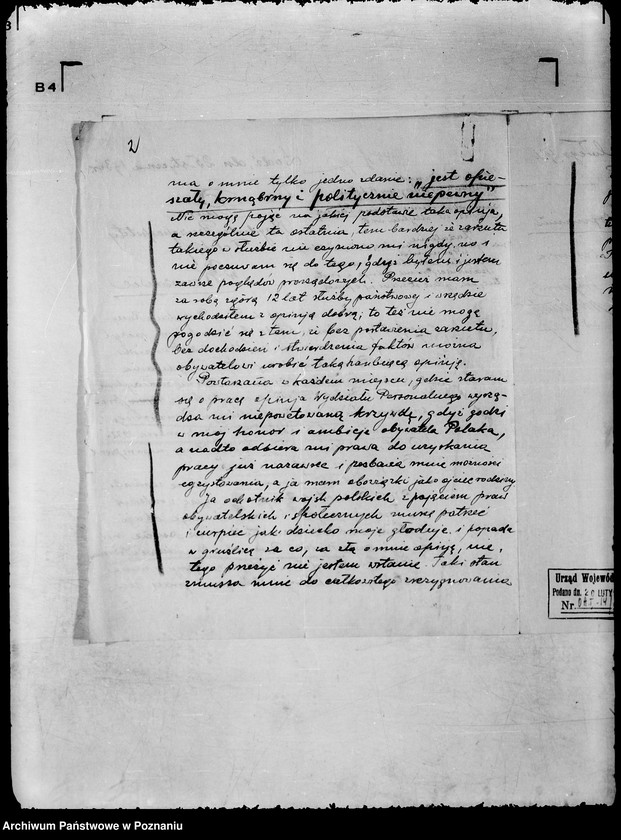 B4
2
ma o mnie tylko jedno zdanie: "jest opie-
szały, krnąbrny i politycznie niepewny"
Nie mogę pojąć na jakiej podstawie taka opinja,
a szczególnie ta ostatnia, tem bardziej że zarzutu
takiego w służbie nie czyniono mi nigdy, no i
nie poczuwam się do tego, gdyż byłem i jestem
zawsze poglądów prorządowych. Przecież mam
za sobą zgórą 12 lat służby państwowej i wszędzie
wychodziłem z opinją dobrą; to też nie mogę
pogodzić się z tem, że bez postawienia zarzutu,
bez dochodzeń i stwierdzenia faktów można
obywatelowi urobić taką hańbiącą opinję.
Powtarzana w każdem miejscu, gdzie staram
się o pracę opinja Wydziału Personalnego wyrzą-
dza mi niepowetowaną krzywdę, gdyż godzi
w mój honor i ambicję obywatela Polaka,
a nadto odbiera mi prawo do uzyskania
pracy już nazawsze i pozbawia mnie możności
egzystowania, a ja mam obowiązki jako ojciec rodziny
Ja ochotnik wojsk polskich z pojęciem praw
obywatelskich i społecznych muszę patrzeć
i cierpieć jak dziecko moje głoduje i popada
w gruźlicę za co, za złą o mnie opinję, nie,
tego przeżyć nie jestem wstanie. Taki stan
zmusza mnie do całkowitego zrezygnowania
Urząd Wojewód
Podano dn. 20 LUTY
Nr.
Archiwum Państwowe w Poznaniu